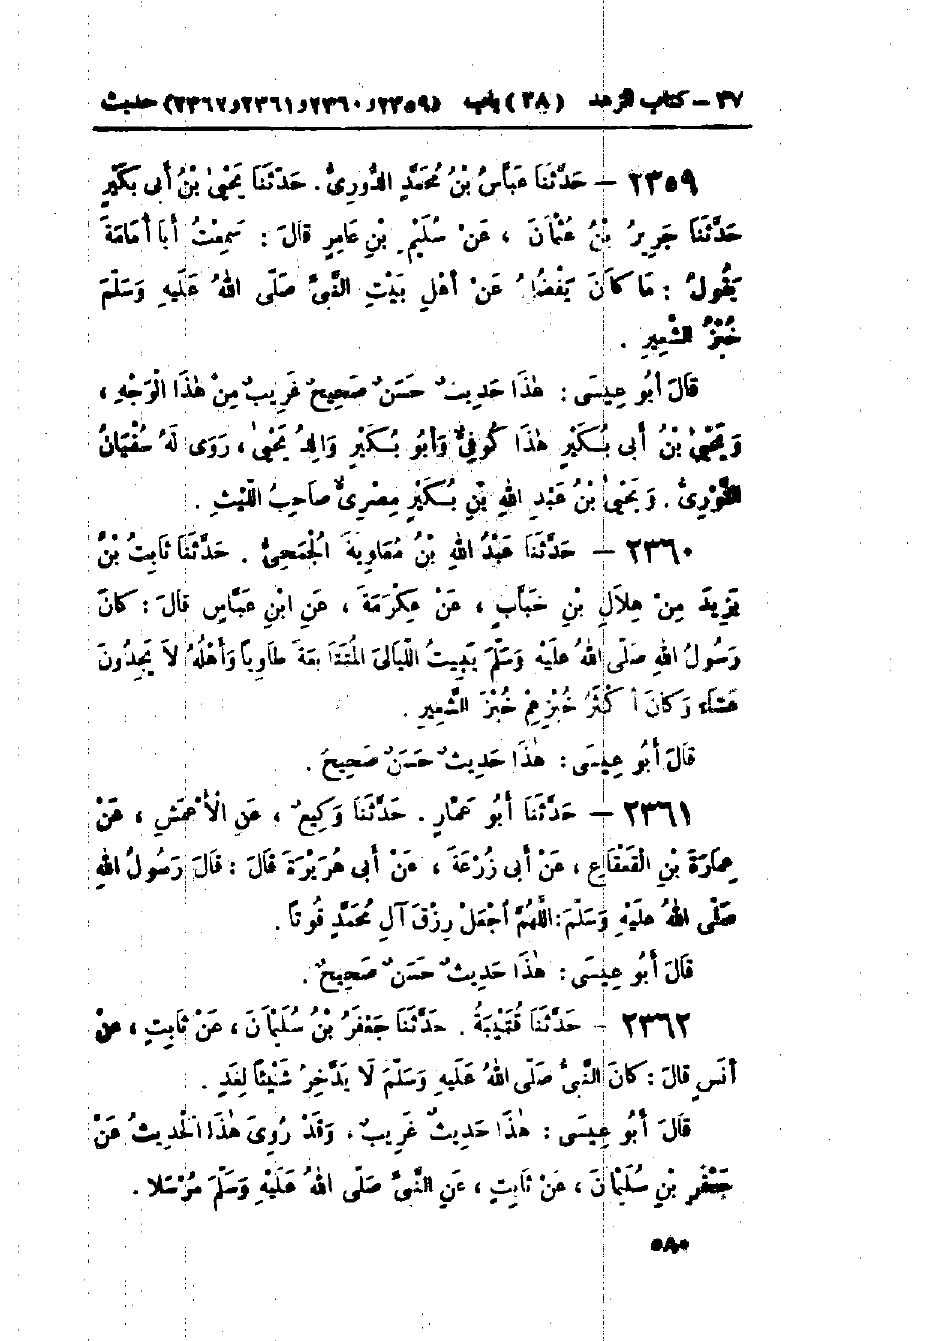 ٣٧ – كتاب الزهد (٣٨) باب (٢٣٥٩و٢٣٦٠و٢٣٦١و٢٣٦٢) حديث
٢٣٥٩ – حَدَّثَنَا عَبَّاسُ بْنُ مُحَمَّدٍ الدُّورِىُّ . حَدَّثَنَا يَحْيَىٰ بْنُ أَبِى بُكَيْرٍ
حَدَّثَنَا جَرِيرُ بْنُ عُثْمَانَ ، عَنْ سُلَيْمِ بْنِ عَامِرٍ قَالَ : سَمِعْتُ أَبَا أُمَامَةَ
يَقُولُ : مَا كَانَ يَفْضُلُ عَنْ أَهْلِ بَيْتِ النَّبِىِّ صَلَّى اللهُ عَلَيْهِ وَسَلَّمَ
خُبْزُ الشَّعِيرِ .
قَالَ أَبُو عِيسَى : هٰذَا حَدِيثٌ حَسَنٌ صَحِيحٌ غَرِيبٌ مِنْ هٰذَا الْوَجْهِ ،
وَيَحْيَىٰ بْنُ أَبِى بُكَيْرٍ هٰذَا كُوفِىٌّ وَأَبُو بُكَيْرٍ وَالِدُ يَحْيَىٰ ، رَوَى لَهُ سُفْيَانُ
الثَّوْرِىُّ . وَيَحْيَىٰ بْنُ عَبْدِ اللهِ بْنِ بُكَيْرٍ مِصْرِىٌّ صَاحِبُ اللَّيْثِ .
٢٣٦٠ – حَدَّثَنَا عَبْدُ اللهِ بْنُ مُعَاوِيَةَ الْجُمَحِىُّ . حَدَّثَنَا ثَابِتُ بْنُ
يَزِيدَ مِنْ هِلَالِ بْنِ خَبَّابٍ ، عَنْ عِكْرِمَةَ ، عَنِ ابْنِ عَبَّاسٍ قَالَ : كَانَ
رَسُولُ اللهِ صَلَّى اللهُ عَلَيْهِ وَسَلَّمَ يَبِيتُ اللَّيَالِىَ الْمُتَتَابِعَةَ طَاوِيًا وَأَهْلُهُ لاَ يَجِدُونَ
عَشَاءً وَكَانَ أَكْثَرُ خُبْزِهِمْ خُبْزَ الشَّعِيرِ .
قَالَ أَبُو عِيسَى : هٰذَا حَدِيثٌ حَسَنٌ صَحِيحٌ .
٢٣٦١ – حَدَّثَنَا أَبُو عَمَّارٍ . حَدَّثَنَا وَكِيعٌ ، عَنِ الْأَعْمَشِ ، عَنْ
عِمَارَةَ بْنِ الْقَعْقَاعِ ، عَنْ أَبِى زُرْعَةَ ، عَنْ أَبِى هُرَيْرَةَ قَالَ : قَالَ رَسُولُ اللهِ
صَلَّى اللهُ عَلَيْهِ وَسَلَّمَ : اللَّهُمَّ اجْعَلْ رِزْقَ آلِ مُحَمَّدٍ قُوتًا .
قَالَ أَبُو عِيسَى : هٰذَا حَدِيثٌ حَسَنٌ صَحِيحٌ .
٢٣٦٢ – حَدَّثَنَا قُتَيْبَةُ . حَدَّثَنَا جَعْفَرُ بْنُ سُلَيْمَانَ ، عَنْ ثَابِتٍ ، عَنْ
أَنَسٍ قَالَ : كَانَ النَّبِىُّ صَلَّى اللهُ عَلَيْهِ وَسَلَّمَ لَا يَدَّخِرُ شَيْئًا لِغَدٍ .
قَالَ أَبُو عِيسَى : هٰذَا حَدِيثٌ غَرِيبٌ ، وَقَدْ رُوِىَ هٰذَا الْحَدِيثُ عَنْ
جَعْفَرِ بْنِ سُلَيْمَانَ ، عَنْ ثَابِتٍ ، عَنِ النَّبِىِّ صَلَّى اللهُ عَلَيْهِ وَسَلَّمَ مُرْسَلًا .
٥٨٠